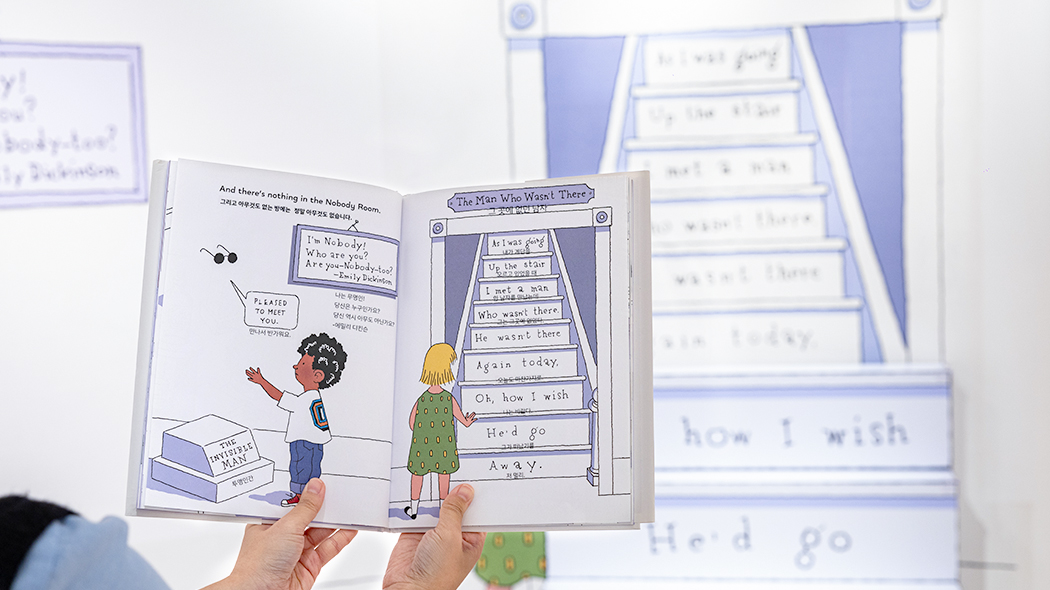 y!
ou?
obody-too?
ily Dickinson
And there's nothing in the Nobody Room.
그리고 아무것도 없는 방에는 정말 아무것도 없습니다.
I'm Nobody!
Who are you?
Are you-Nobody-too?
-Emily Dickinson
나는 무명인!
당신은 누구인가요?
당신 역시 아무도 아닌가요?
-에밀리 디킨슨
PLEASED
TO MEET
YOU.
만나서 반가워요.
THE
INVISIBLE
MAN
투명인간
The Man Who Wasn't There
그 곳에 없던 남자
As I was going
내가 계단을
Up the stair
오르고 있었을 때
I met a man
한 남자를 만났는데
Who wasn't there.
그는 그곳에 없었다.
He wasn't there
Again today.
오늘도 마찬가지로.
Oh, how I wish
나는 바랐다.
He'd go
그가 떠나기를
Away.
저 멀리.
As I was going
Up the stair
I met a man
ho wasn't there
wasn't there
ain today.
how I wish
He'd go